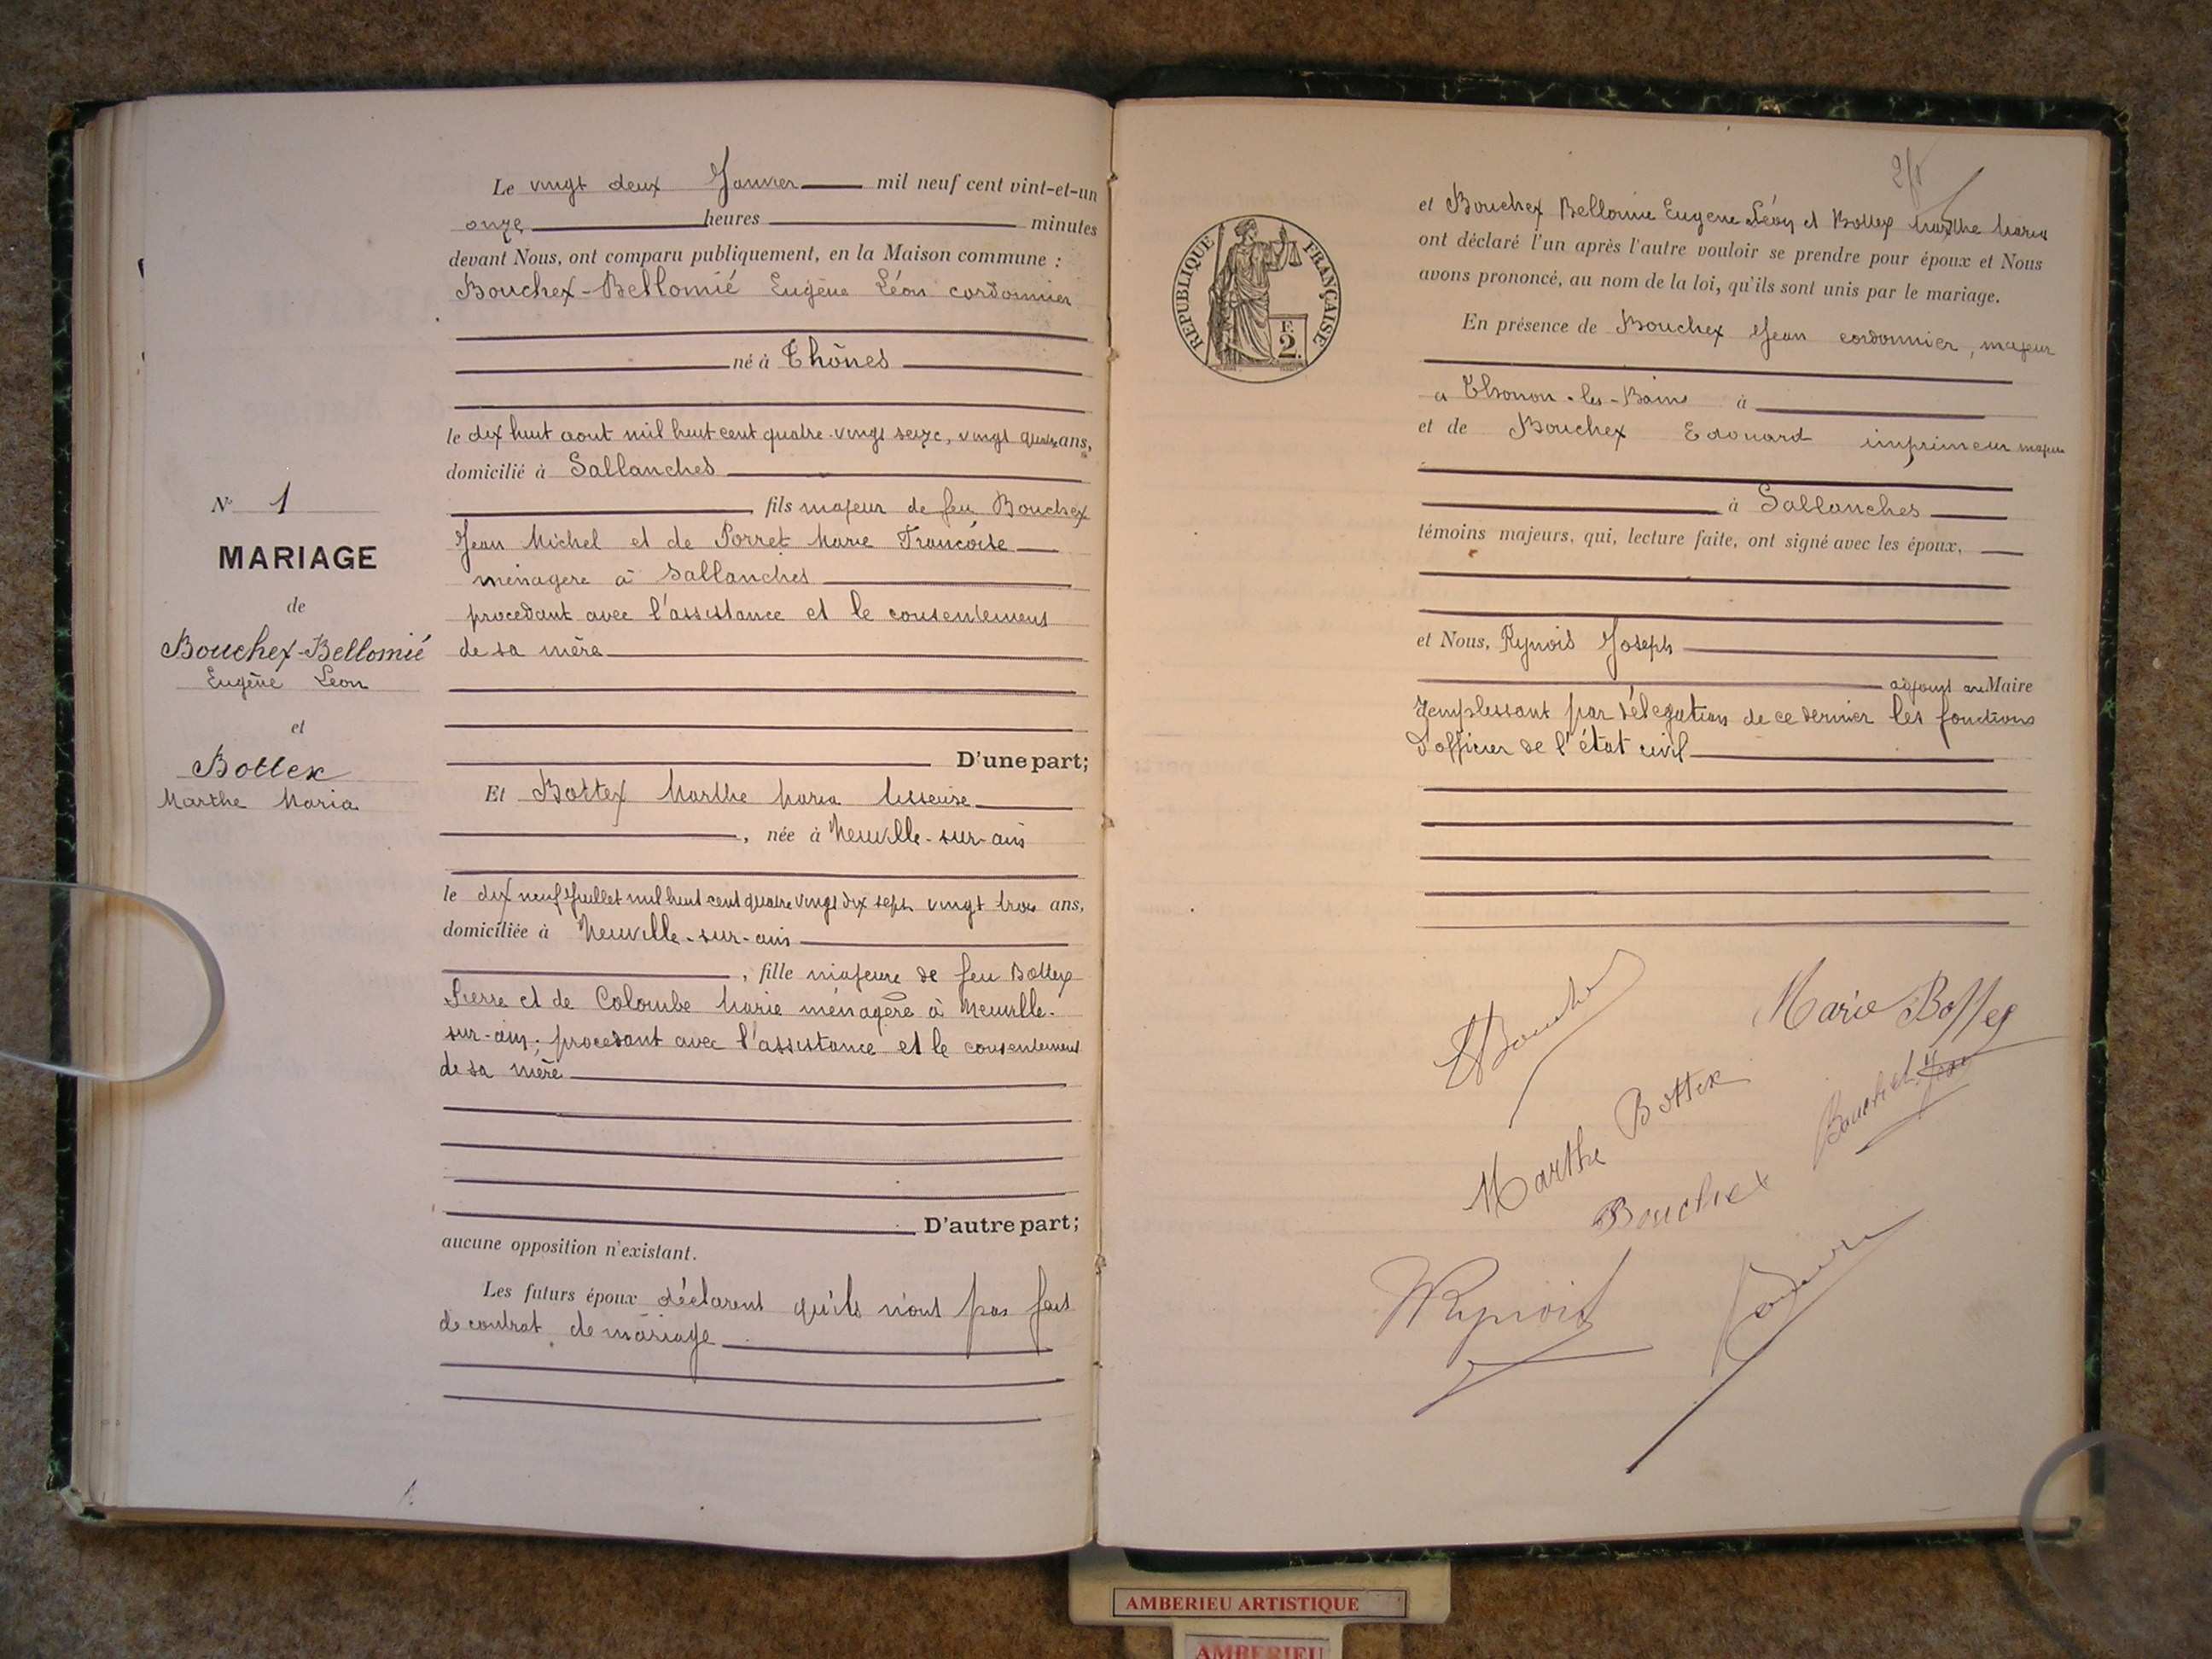 N° 1
MARIAGE
de
Bouchex-Bellomié
Eugène Léon
et
Bottex
Marthe Maria
Le vingt deux Janvier mil neuf cent vint-et-un
onze heures minutes
devant Nous, ont comparu publiquement, en la Maison commune :
Bouchex-Bellomié Eugène Léon cordonnier
né à Thônes
le dix huit aout mil huit cent quatre-vingt seize, vingt quatre ans,
domicilié à Sallanches
fils majeur de feu Bouchex
Jean Michel et de Porret Marie Francoise
ménagère à Sallanches
procedant avec l'assistance et le consentement
de sa mère
D'une part;
Et Bottex Marthe Maria tisseuse
, née à Neuville-sur-ain
le dix neuf Juillet mil huit cent quatre vingt dix sept vingt trois ans,
domiciliée à Neuville-sur-ain
, fille majeure de feu Bottex
Pierre et de Colombe Marie ménagère à Neuville-
sur-ain; procedant avec l'assistance et le consentement
de sa mère
D'autre part;
aucune opposition n'existant.
Les futurs époux déclarent qu'ils n'ont pas fait
de contrat de mariage
REPUBLIQUE FRANÇAISE
F.
2.
et Bouchex Bellomie Eugene Léon et Bottex Marthe Maria
ont déclaré l'un après l'autre vouloir se prendre pour époux et Nous
avons prononcé, au nom de la loi, qu'ils sont unis par le mariage.
En présence de Bouchex Jean cordonnier, majeur
a Thonon-les-Bains à
et de Bouchex Edouard imprimeur majeur
à Sallanches
témoins majeurs, qui, lecture faite, ont signé avec les époux,
et Nous, Rynois Joseph
adjoint au Maire
remplissant par délégation de ce dernier les fonctions
d'officier de l'état civil
Marie Bottex
Marthe Bottex
Bouchex
Rynois
AMBERIEU ARTISTIQUE
AMBERIEU